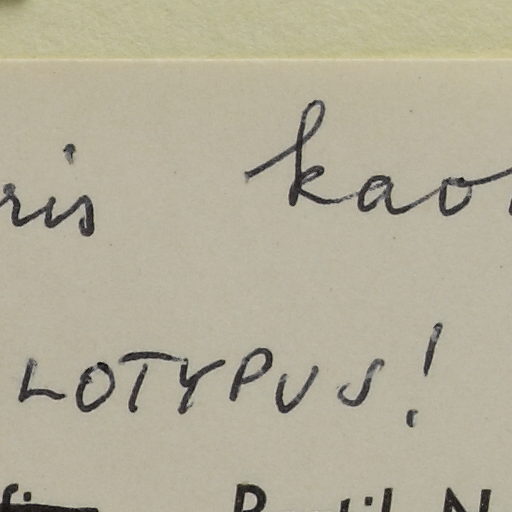 ris kao
LOTYPUS!